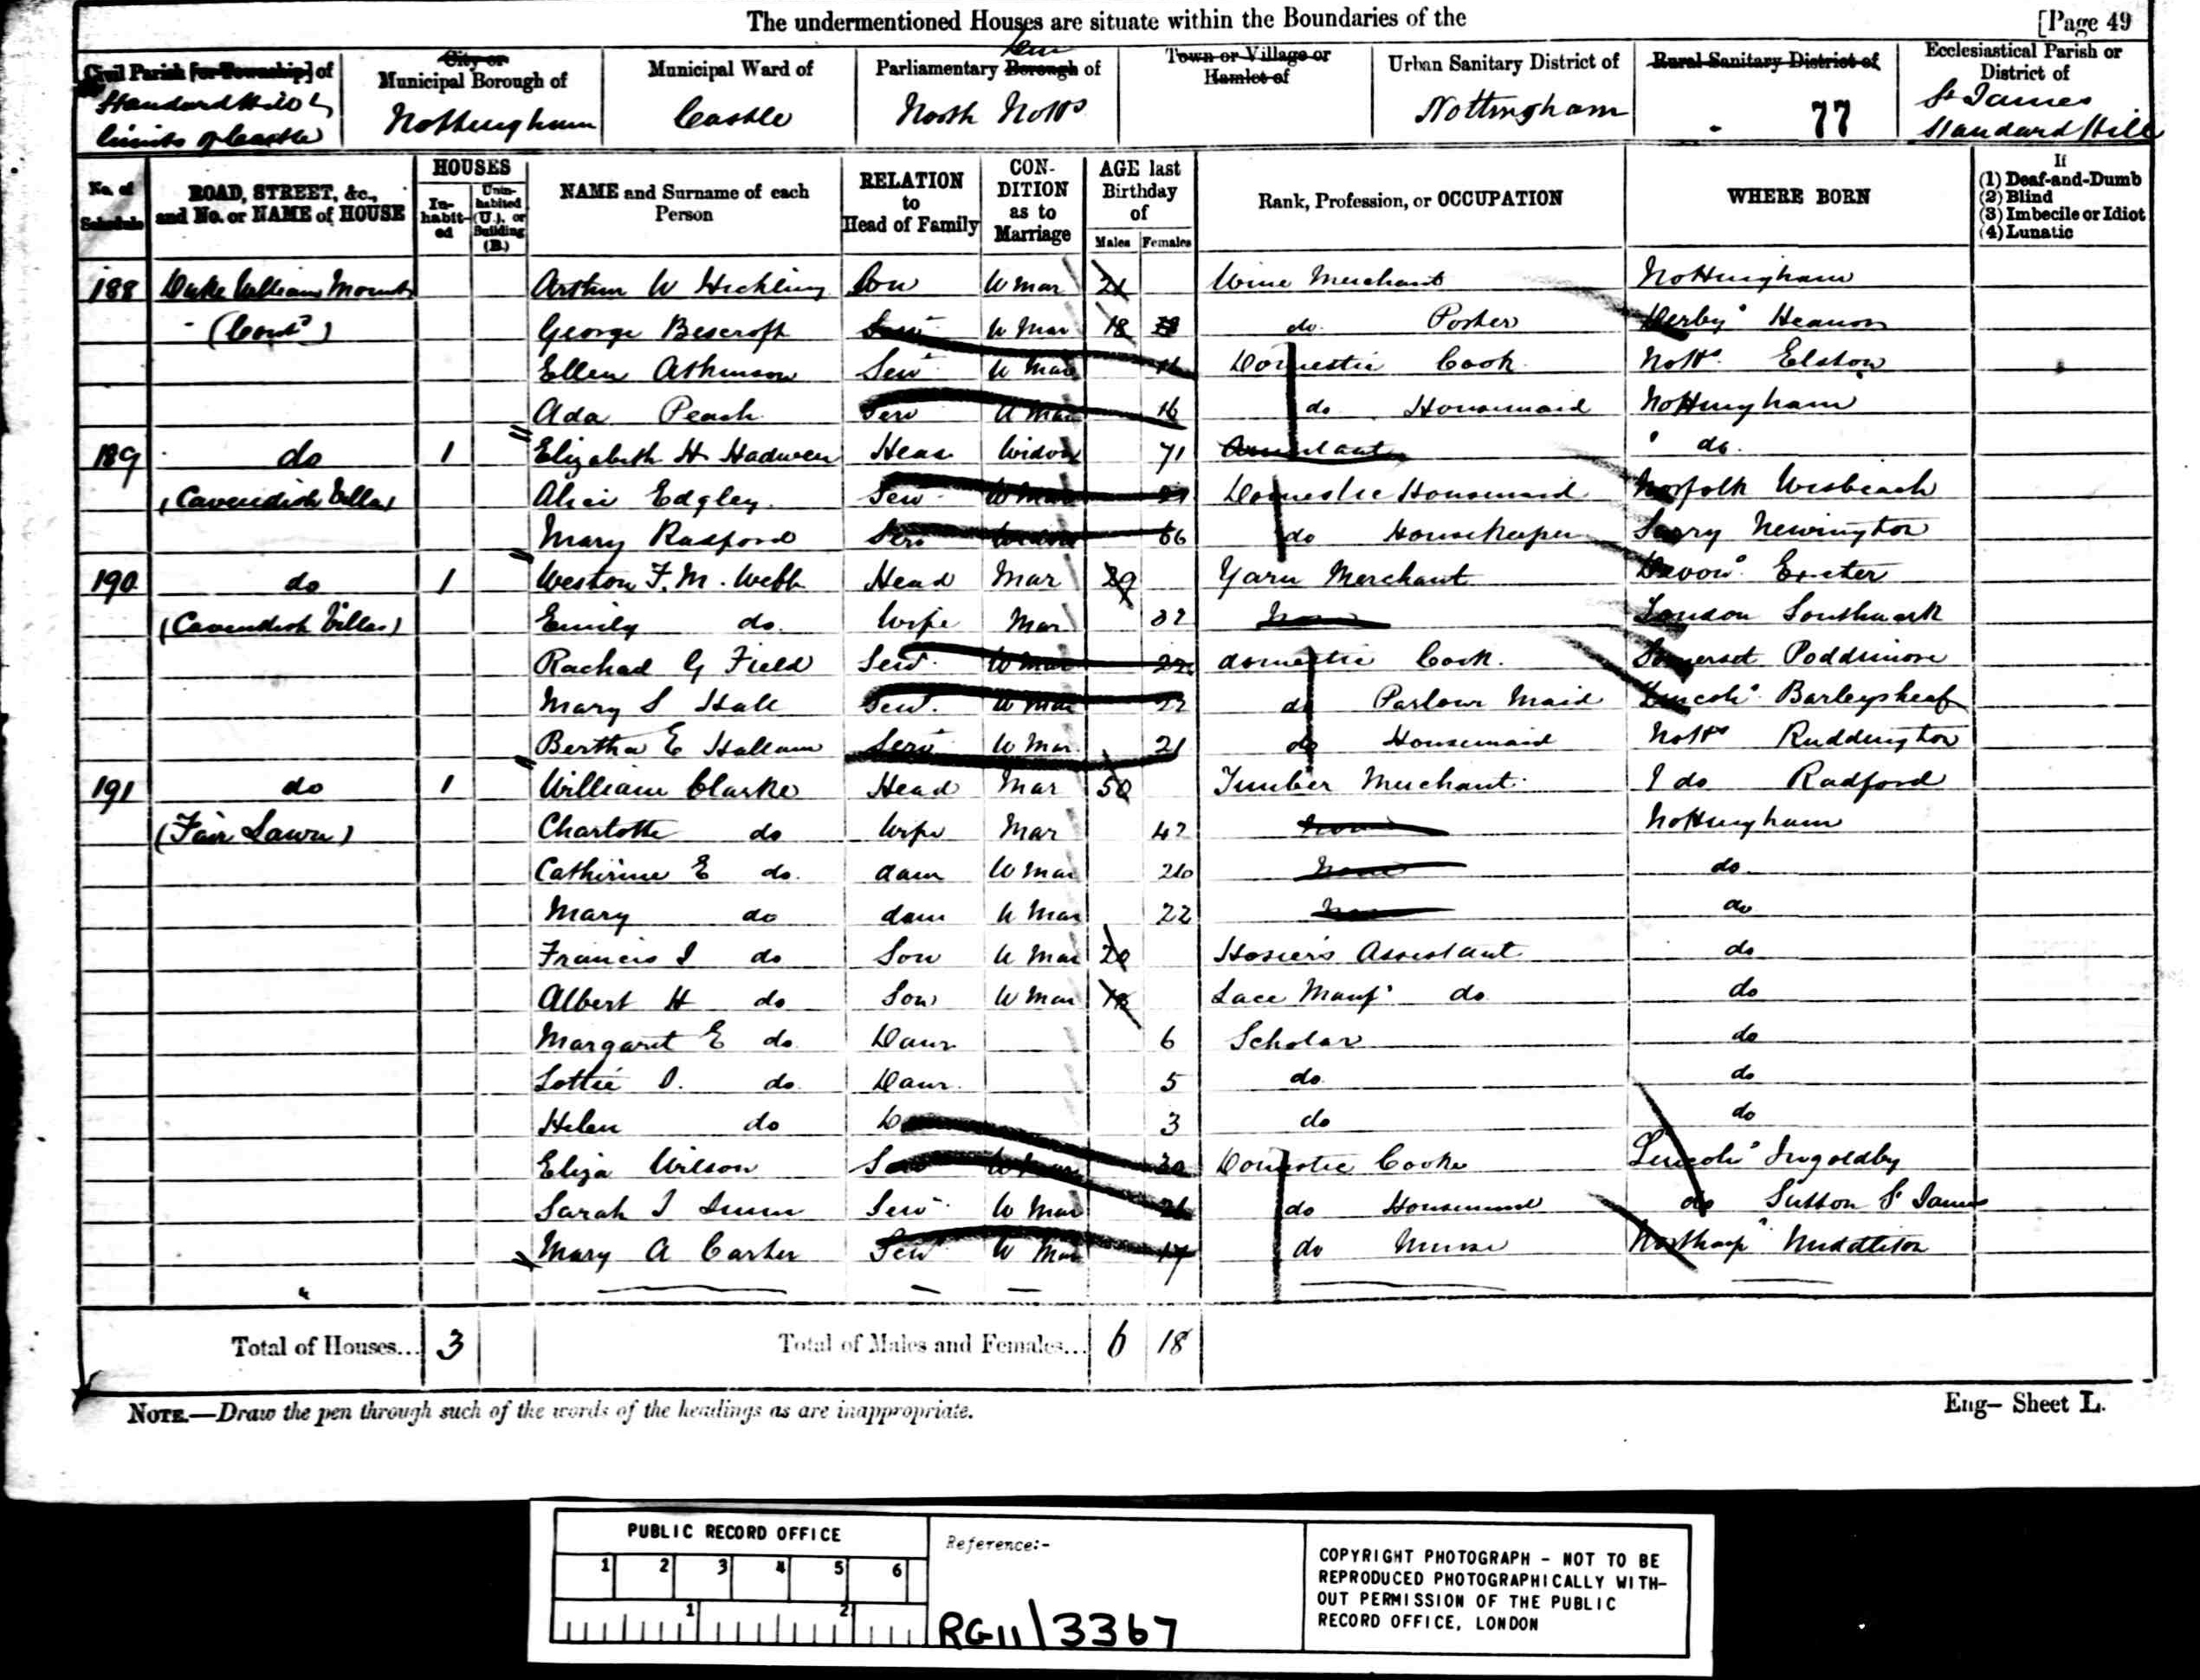 The undermentioned Houses are situate within the Boundaries of the [Page 49
Civil Parish [or Township] of City or Municipal Borough of Municipal Ward of Parliamentary Borough of Town or Village or Hamlet of Urban Sanitary District of Rural Sanitary District of Ecclesiastical Parish or District of
Standard Hill & limits of Castle Nottingham Castle North Notts Nottingham 77 St James Standard Hill
No. of Schedule ROAD, STREET, &c., and No. or NAME of HOUSE HOUSES In-habit-ed Unin-habited (U.), or Building (B.) NAME and Surname of each Person RELATION to Head of Family CON-DITION as to Marriage AGE last Birthday of Males Females Rank, Profession, or OCCUPATION WHERE BORN If (1) Deaf-and-Dumb (2) Blind (3) Imbecile or Idiot (4) Lunatic
188 Duke William Mount Arthur W Hickling Son U Mar 21 Wine Merchant Nottingham
(Cont'd) George Bescroft Serv U Mar 18 do Porter Derby Heanor
Ellen Atkinson Serv U Mar 16 Domestic Cook Notts Elston
Ada Peach Serv U Mar 16 do Housemaid Nottingham
189 do 1 Elizabeth H Hadwen Head Widow 71 Annuitant do
(Cavendish Villa) Alice Edgley Serv U Mar Domestic Housemaid Norfolk Wisbeach
Mary Radford Serv Widow 66 do Housekeeper Surry Newington
190 do 1 Weston F. M. Webb Head Mar 29 Yarn Merchant Devon Exeter
(Cavendish Villas) Emily do Wife Mar 32 None London Southwark
Rachael G Field Serv U Mar 22 domestic Cook Somerset Poddimore
Mary S Hall Serv U Mar 22 do Parlour Maid Lincoln Barleysheaf
Bertha E Hallam Serv U Mar 21 do Housemaid Notts Ruddington
191 do 1 William Clarke Head Mar 50 Timber Merchant do Radford
(Fair Lawn) Charlotte do Wife Mar 47 None Nottingham
Catherine E do daur U Mar 26 None do
Mary do daur U Mar 22 None do
Francis J do Son U Mar 20 Hosier's Assistant do
Albert H do Son U Mar 18 Lace Manufr do do
Margaret E do Daur 6 Scholar do
Lottie O. do Daur 5 do do
Helen do D 3 do do
Eliza Wilson Serv U Mar 20 Domestic Cook Lincoln Ingoldby
Sarah J Serv U Mar 26 do Housemaid do Sutton St James
Mary A Carter Serv U Mar 17 do Nurse Northamp Middleton
Total of Houses... 3 Total of Males and Females... 6 18
NOTE.—Draw the pen through such of the words of the headings as are inappropriate. Eng— Sheet L.
PUBLIC RECORD OFFICE
1 2 3 4 5 6
1 2
Reference:-
RG11/3367
COPYRIGHT PHOTOGRAPH - NOT TO BE
REPRODUCED PHOTOGRAPHICALLY WITH-
OUT PERMISSION OF THE PUBLIC
RECORD OFFICE, LONDON